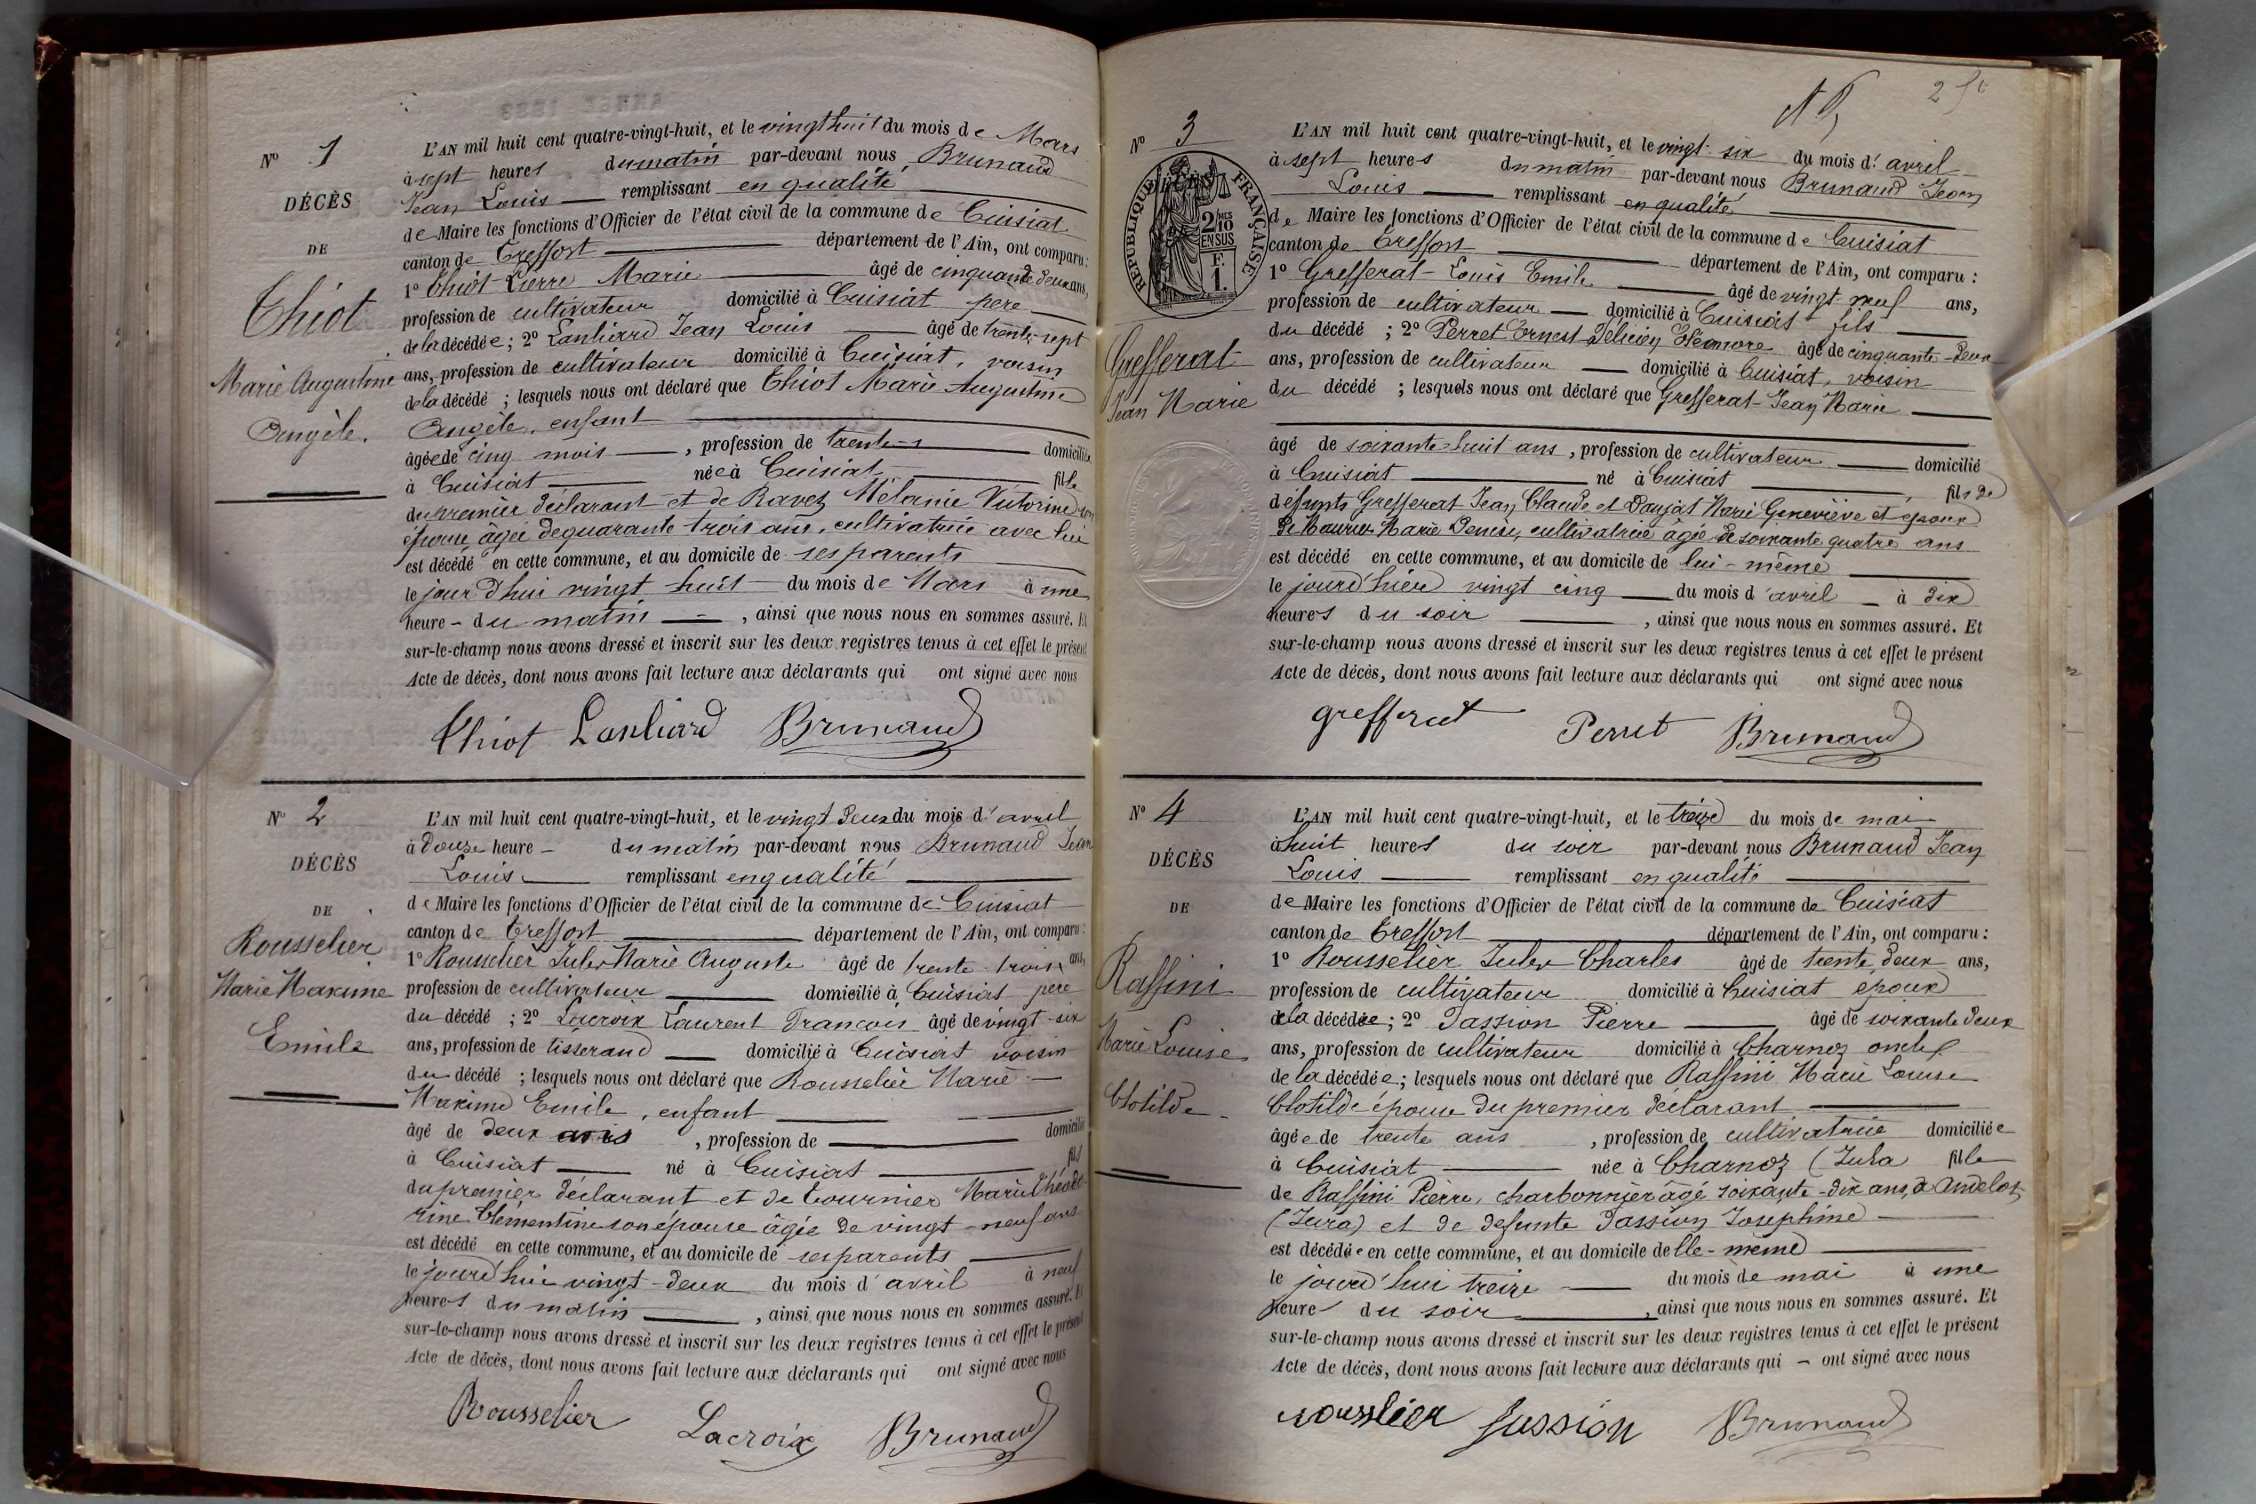 N° 1
DÉCÈS
DE
Thiot
Marie Augustine
Angèle.
L'AN mil huit cent quatre-vingt-huit, et le vingt huit du mois de Mars
à sept heures du matin par-devant nous Brunaud
Jean Louis remplissant en qualité
de Maire les fonctions d'Officier de l'état civil de la commune de Cuisiat
canton de Treffort département de l'Ain, ont comparu :
1° Thiot Pierre Marie âgé de cinquante deux ans,
profession de cultivateur domicilié à Cuisiat père
de la décédée ; 2° Lanliard Jean Louis âgé de trente-sept
ans, profession de cultivateur domicilié à Cuisiat, voisin
de la décédé ; lesquels nous ont déclaré que Thiot Marie Augustine
Angèle, enfant
âgée de cinq mois , profession de domiciliée
à Cuisiat née à Cuisiat fille
du premier déclarant et de Ravez Mélanie Victorine son
épouse âgée de quarante trois ans, cultivatrice avec lui
est décédé en cette commune, et au domicile de ses parents
le jour d'hui vingt huit du mois de Mars à une
heure du matin , ainsi que nous nous en sommes assuré. Et
sur-le-champ nous avons dressé et inscrit sur les deux registres tenus à cet effet le présent
Acte de décès, dont nous avons fait lecture aux déclarants qui ont signé avec nous
Thiot Lanliard Brunaud
N° 2
DÉCÈS
DE
Rousselier
Marie Maxime
Emile
L'AN mil huit cent quatre-vingt-huit, et le vingt deux du mois d'avril
à douze heure du matin par-devant nous Brunaud Jean
Louis remplissant en qualité
de Maire les fonctions d'Officier de l'état civil de la commune de Cuisiat
canton de Treffort département de l'Ain, ont comparu :
1° Rousselier Jules Marie Auguste âgé de trente trois ans,
profession de cultivateur domicilié à Cuisiat père
du décédé ; 2° Lacroix Laurent François âgé de vingt-six
ans, profession de tisserand domicilié à Cuisiat voisin
du décédé ; lesquels nous ont déclaré que Rousselier Marie
Maxime Emile, enfant
âgé de deux ans , profession de domicilié
à Cuisiat né à Cuisiat fils
du premier déclarant et de Tournier Marie Théodo-
rine Clémentine son épouse âgée de vingt-neuf ans
est décédé en cette commune, et au domicile de ses parents
le jourd'hui vingt-deux du mois d'avril à neuf
heures du matin , ainsi que nous nous en sommes assuré. Et
sur-le-champ nous avons dressé et inscrit sur les deux registres tenus à cet effet le présent
Acte de décès, dont nous avons fait lecture aux déclarants qui ont signé avec nous
Rousselier Lacroix Brunaud
N° 3
RÉPUBLIQUE FRANÇAISE
2/10 EN SUS
F. 1.
Grefferat
Jean Marie
L'AN mil huit cent quatre-vingt-huit, et le vingt six du mois d'avril
à sept heures du matin par-devant nous Brunaud Jean
Louis remplissant en qualité
de Maire les fonctions d'Officier de l'état civil de la commune de Cuisiat
canton de Treffort département de l'Ain, ont comparu :
1° Grefferat Louis Emile âgé de vingt neuf ans,
profession de cultivateur domicilié à Cuisiat fils
du décédé ; 2° Perret Ernest Félicien âgé de cinquante-deux
ans, profession de cultivateur domicilié à Cuisiat, voisin
du décédé ; lesquels nous ont déclaré que Grefferat Jean Marie
âgé de soixante-huit ans , profession de cultivateur domicilié
à Cuisiat né à Cuisiat fils de
defunts Grefferat Jean Claude et Daujat Marie Geneviève et époux
de Marie Denise, cultivatrice âgée de soixante quatre ans
est décédé en cette commune, et au domicile de lui-même
le jourd'hier vingt cinq du mois d'avril à dix
heures du soir , ainsi que nous nous en sommes assuré. Et
sur-le-champ nous avons dressé et inscrit sur les deux registres tenus à cet effet le présent
Acte de décès, dont nous avons fait lecture aux déclarants qui ont signé avec nous
Grefferat Perret Brunaud
N° 4
DÉCÈS
DE
Raffini
Marie Louise
Clotilde
L'AN mil huit cent quatre-vingt-huit, et le treize du mois de mai
à huit heures du soir par-devant nous Brunaud Jean
Louis remplissant en qualité
de Maire les fonctions d'Officier de l'état civil de la commune de Cuisiat
canton de Treffort département de l'Ain, ont comparu :
1° Rousselier Jules Charles âgé de trente deux ans,
profession de cultivateur domicilié à Cuisiat époux
de la décédée ; 2° Passion Pierre âgé de soixante deux
ans, profession de cultivateur domicilié à Charnoz oncle
de la décédée ; lesquels nous ont déclaré que Raffini Marie Louise
Clotilde épouse du premier déclarant
âgée de trente ans , profession de cultivatrice domiciliée
à Cuisiat née à Charnoz (Jura fille
de Raffini Pierre, charbonnier âgé soixante-dix ans, à Andelot
(Jura) et de defunte Passion Josephine
est décédée en cette commune, et au domicile d'elle-même
le jourd'hui treize du mois de mai à une
heure du soir , ainsi que nous nous en sommes assuré. Et
sur-le-champ nous avons dressé et inscrit sur les deux registres tenus à cet effet le présent
Acte de décès, dont nous avons fait lecture aux déclarants qui ont signé avec nous
Rousselier Passion Brunaud